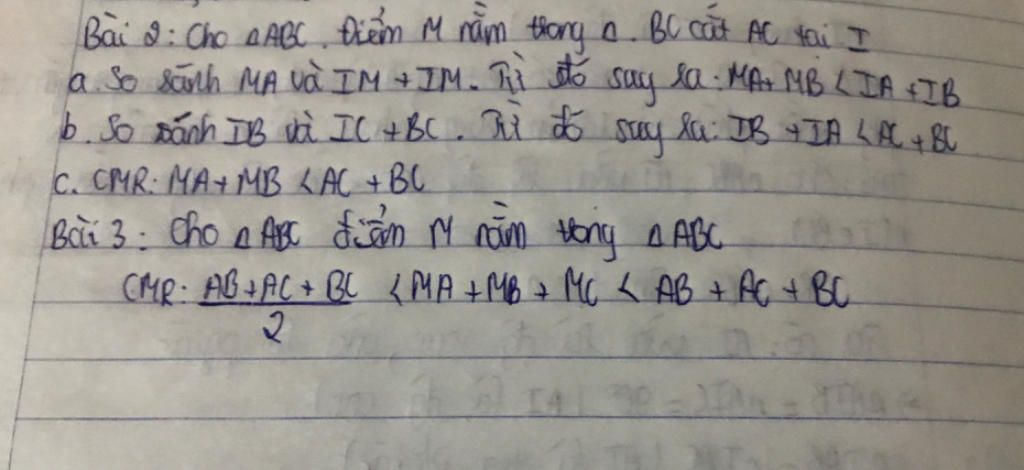 Bài 2: Cho △ABC. Điểm M nằm trong △. BC cắt AC tại I
a. So sánh MA và IM + IM. Từ đó suy ra: MA + MB < IA + IB
b. So sánh IB và IC + BC. Từ đó suy ra: IB + IA < AC + BC
c. CMR: MA + MB < AC + BC
Bài 3: Cho △ABC điểm M nằm trong △ABC
CMR: \frac{AB + AC + BC}{2} < MA + MB + MC < AB + AC + BC